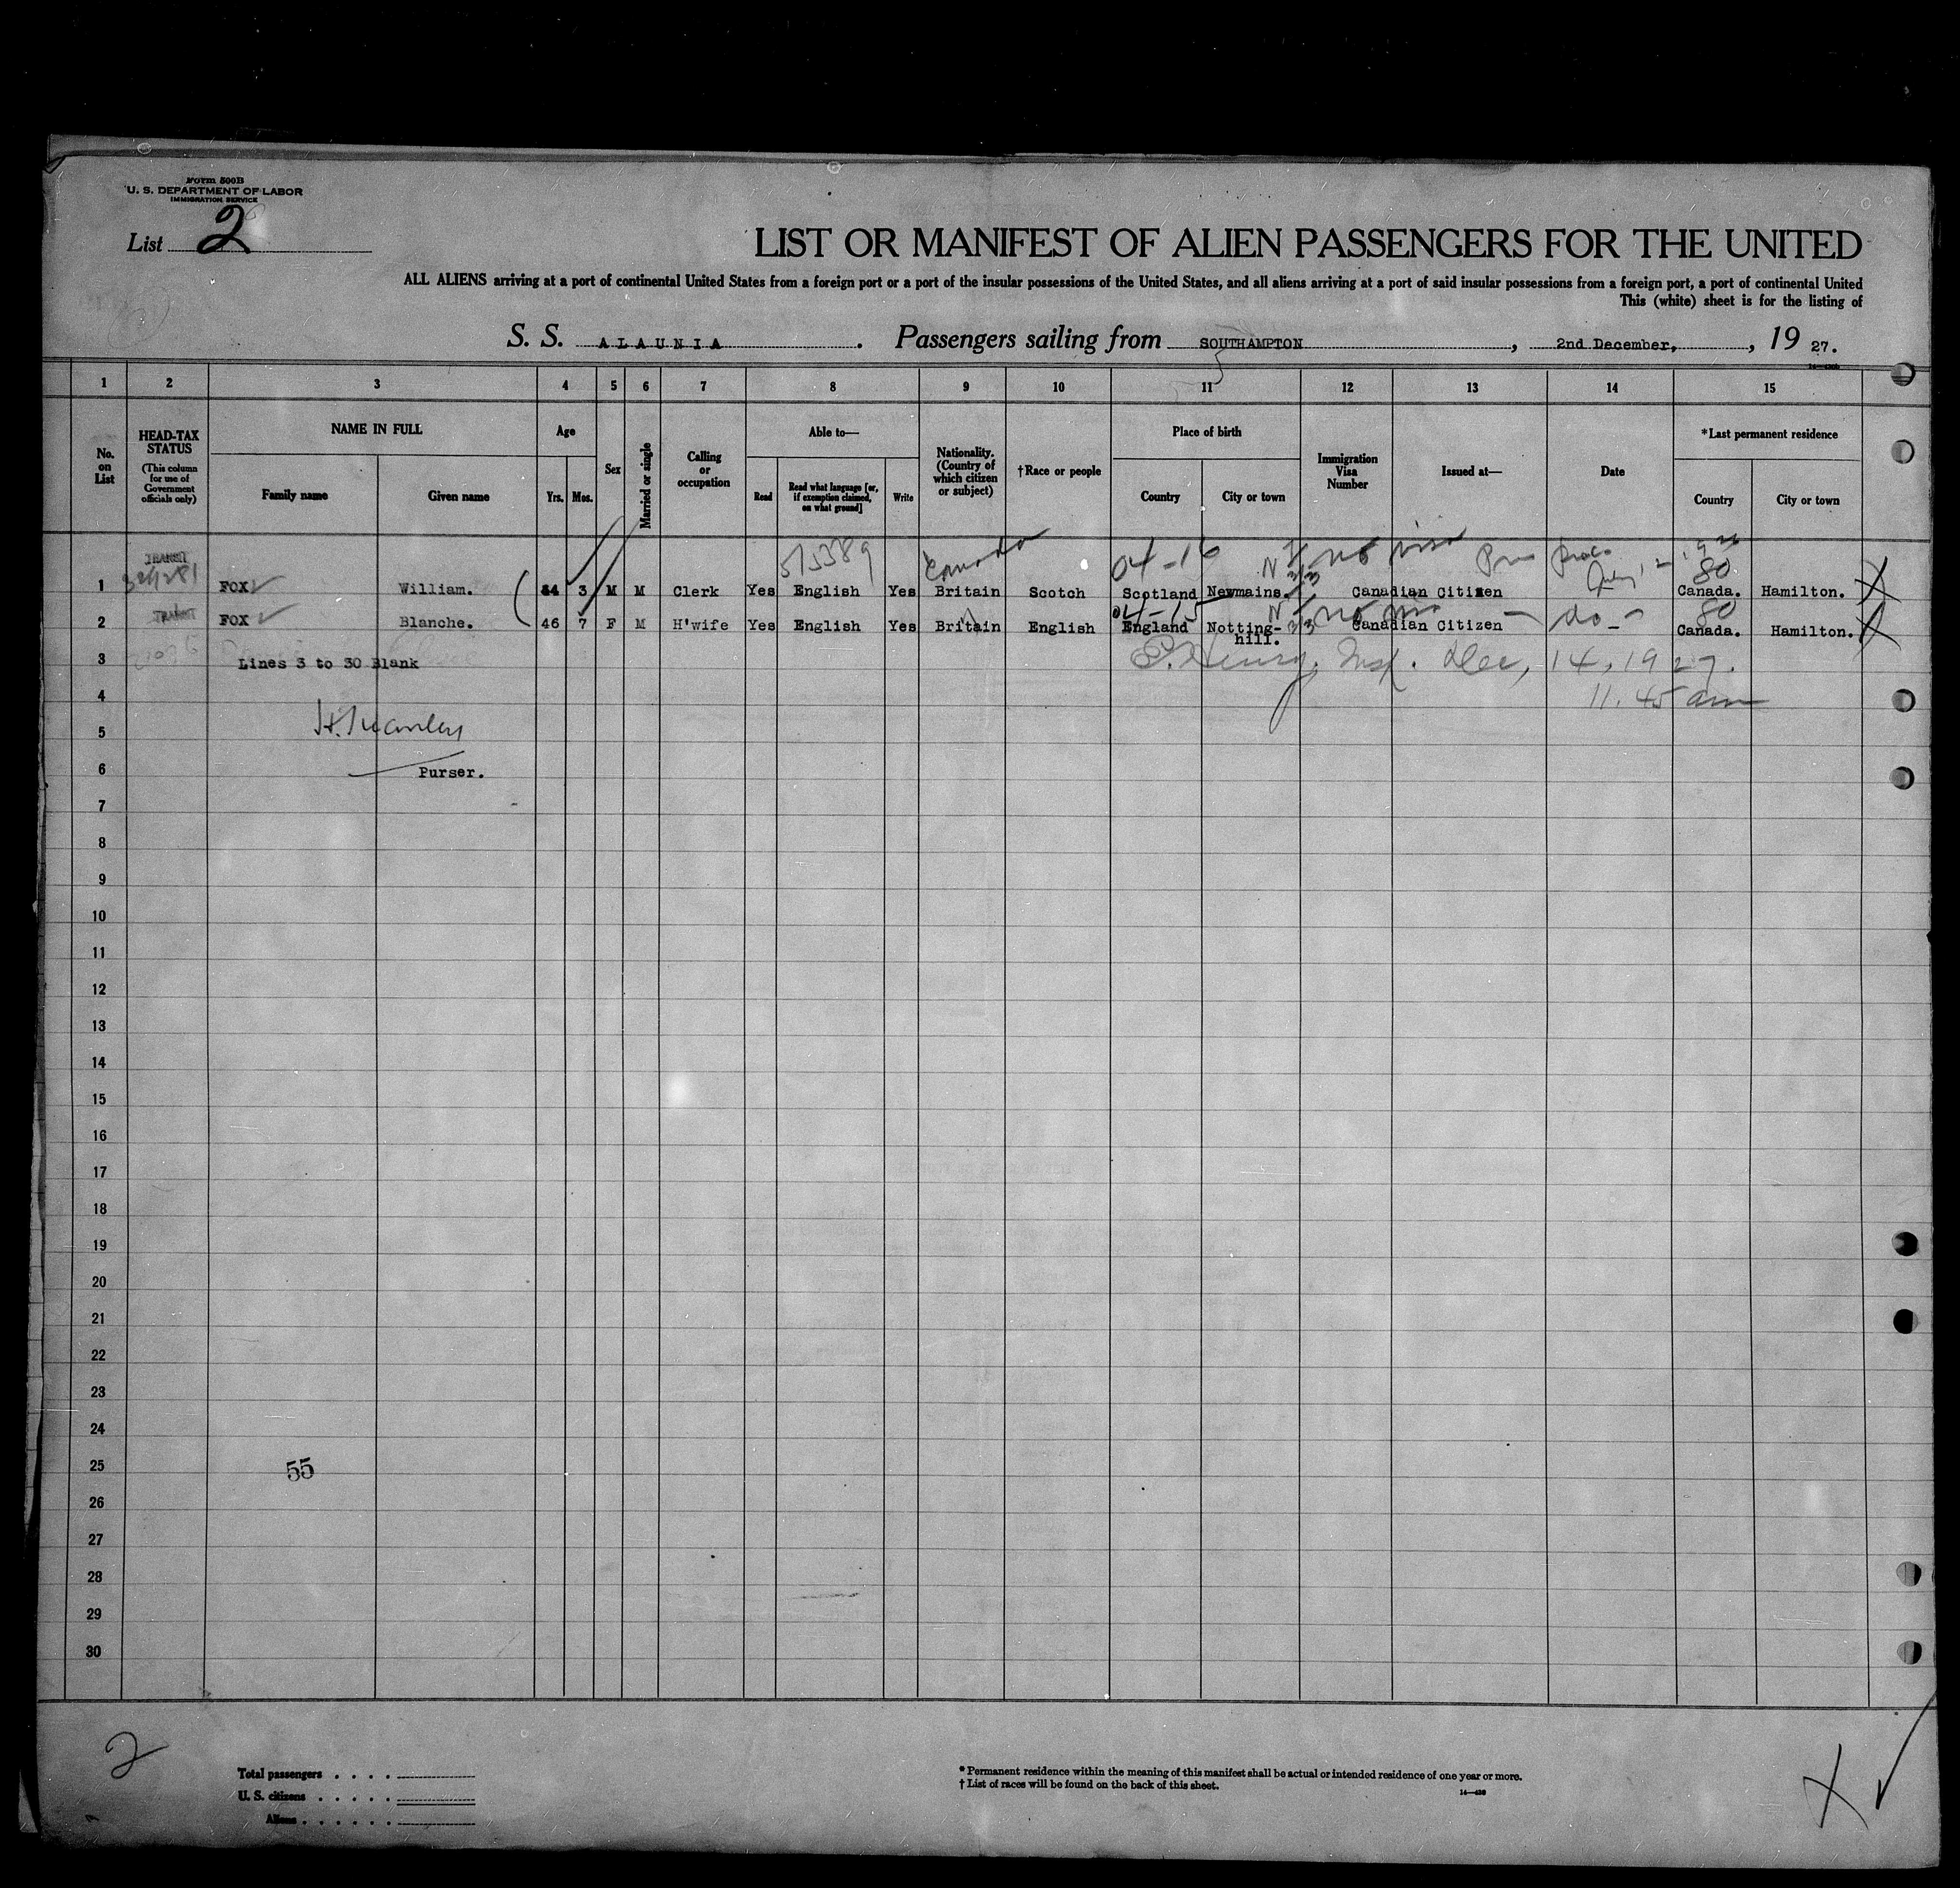 Form 500B
U. S. DEPARTMENT OF LABOR
IMMIGRATION SERVICE
List 2
LIST OR MANIFEST OF ALIEN PASSENGERS FOR THE UNITED
ALL ALIENS arriving at a port of continental United States from a foreign port or a port of the insular possessions of the United States, and all aliens arriving at a port of said insular possessions from a foreign port, a port of continental United
This (white) sheet is for the listing of
S. S. ALAUNIA. Passengers sailing from SOUTHAMPTON, 2nd December, , 19 27.
1 2 3 4 5 6 7 8 9 10 11 12 13 14 15
No. on List
HEAD-TAX STATUS
(This column for use of Government officials only)
NAME IN FULL
Family name Given name
Age
Yrs. Mos.
Sex
Married or single
Calling or occupation
Able to—
Read
Read what language [or, if exemption claimed, on what ground]
Write
Nationality. (Country of which citizen or subject)
†Race or people
Place of birth
Country City or town
Immigration Visa Number
Issued at—
Date
*Last permanent residence
Country City or town
TRANSIT 5/5389 Canada 04-16 no visa
1 FOX William. 3 M M Clerk Yes English Yes Britain Scotch Scotland Newmains. Canadian Citizen 80 Canada. Hamilton.
2 TRANSIT FOX Blanche. 46 7 F M H'wife Yes English Yes Britain English England Notting-hill. Canadian Citizen — do — 80 Canada. Hamilton.
3 Lines 3 to 30 Blank Henry, Insp. Dec, 14, 1927.
4 11.45 am
5
6 Purser.
7
8
9
10
11
12
13
14
15
16
17
18
19
20
21
22
23
24
25 55
26
27
28
29
30
2
Total passengers
U. S. citizens
Aliens
* Permanent residence within the meaning of this manifest shall be actual or intended residence of one year or more.
† List of races will be found on the back of this sheet.
14—430